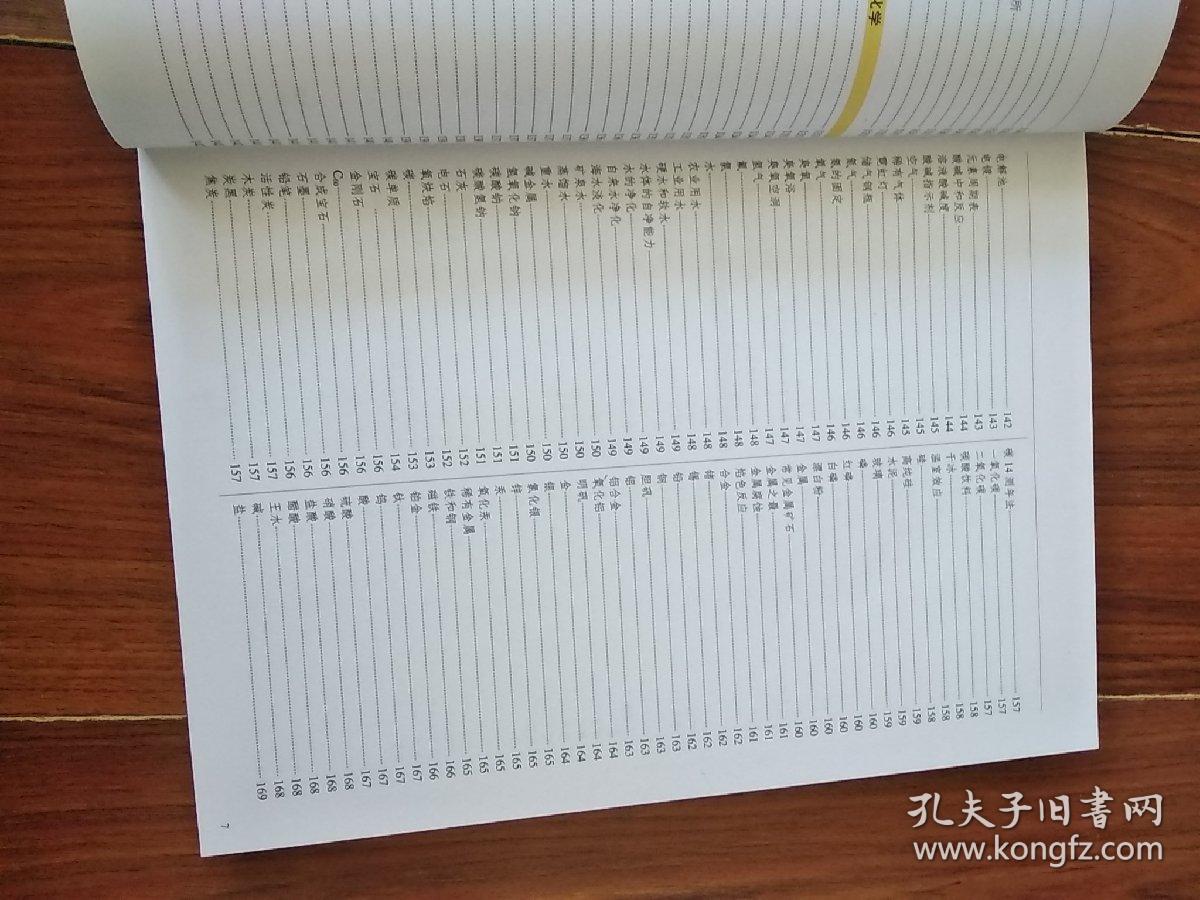 所
化学
电解池 142
电镀 143
元素周期表 143
酸碱中和反应 144
溶液酸碱度 144
酸碱指示剂 145
空气 145
稀有气体 145
霓虹灯 146
储气钢瓶 146
氮气 146
氮的固定 146
氧气 147
臭氧 147
臭氧浴 147
臭氧空洞 147
氢气 148
氟 148
氯 148
水 148
农业用水 148
工业用水 149
硬水和软水 149
水体的自净能力 149
水的净化 149
自来水净化 149
海水淡化 150
矿泉水 150
蒸馏水 150
重水 150
碱金属 150
氢氧化钠 151
碳酸钠 151
碳酸氢钠 151
石灰 152
卤石 152
氧炔焰 153
碳 153
碳单质 154
宝石 156
金刚石 156
C60 156
合成宝石 156
石墨 156
铅笔 156
活性炭 157
木炭 157
炭黑 157
焦炭 157
碳14测年法 157
一氧化碳 157
二氧化碳 157
碳酸饮料 158
干冰 158
温室效应 158
硅 158
高纯硅 159
水泥 159
玻璃 159
磷 160
红磷 160
白磷 160
漂白粉 160
金属 160
常见金属矿石 161
金属之最 161
金属腐蚀 161
焰色反应 162
合金 162
锗 162
锡 162
铅 163
铜 163
胆矾 163
铝合金 163
氧化铝 164
明矾 164
金 164
银 165
氯化银 165
锌 165
汞 165
氧化汞 165
稀有金属 165
铁和钢 166
磁铁 166
铂金 167
钛 167
钨 167
酸 167
硫酸 168
硝酸 168
盐酸 168
醋酸 168
王水 168
碱
盐 169
7
孔夫子旧书网
www.kongfz.com